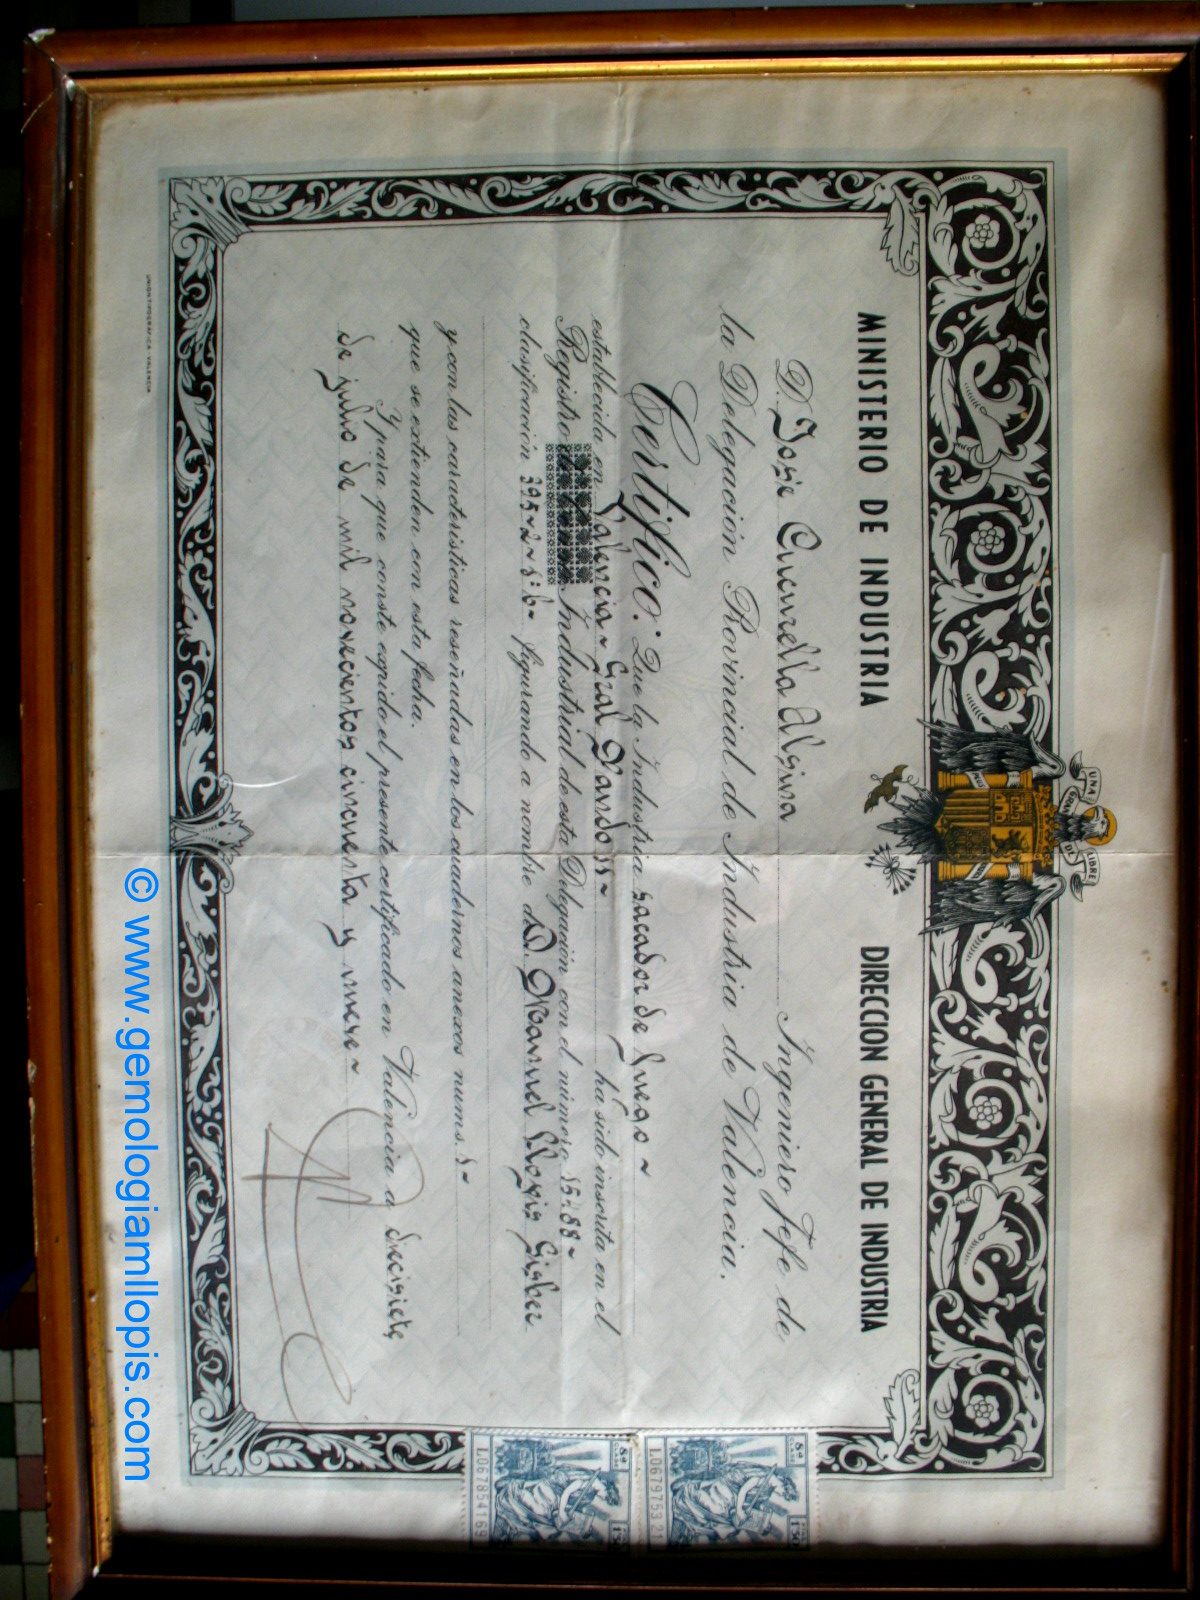 UNA
GRANDE
LIBRE
MINISTERIO DE INDUSTRIA
DIRECCION GENERAL DE INDUSTRIA
D. José Cucurella Alsina Ingeniero Jefe de
la Delegación Provincial de Industria de Valencia.
Certifico: Que la Industria sacador de fuego ~
establecida en Valencia ~ Gral Pando ~ ha sido inscrita en el
Registro Industrial de esta Delegación con el número 15.588 ~
clasificación 395~2~ figurando a nombre de D. Manuel Llopis Gisber
y con las características reseñadas en los cuadernos anexos nums.
que se extienden con esta fecha.
Y para que conste expido el presente certificado en Valencia a diecisiete
de julio de mil novecientos cincuenta y nueve ~
8ª CLASE
L0679753 21
8ª CLASE
L0678541 69
UNION TIPOGRAFICA VALENCIA
© www.gemologiamllopis.com